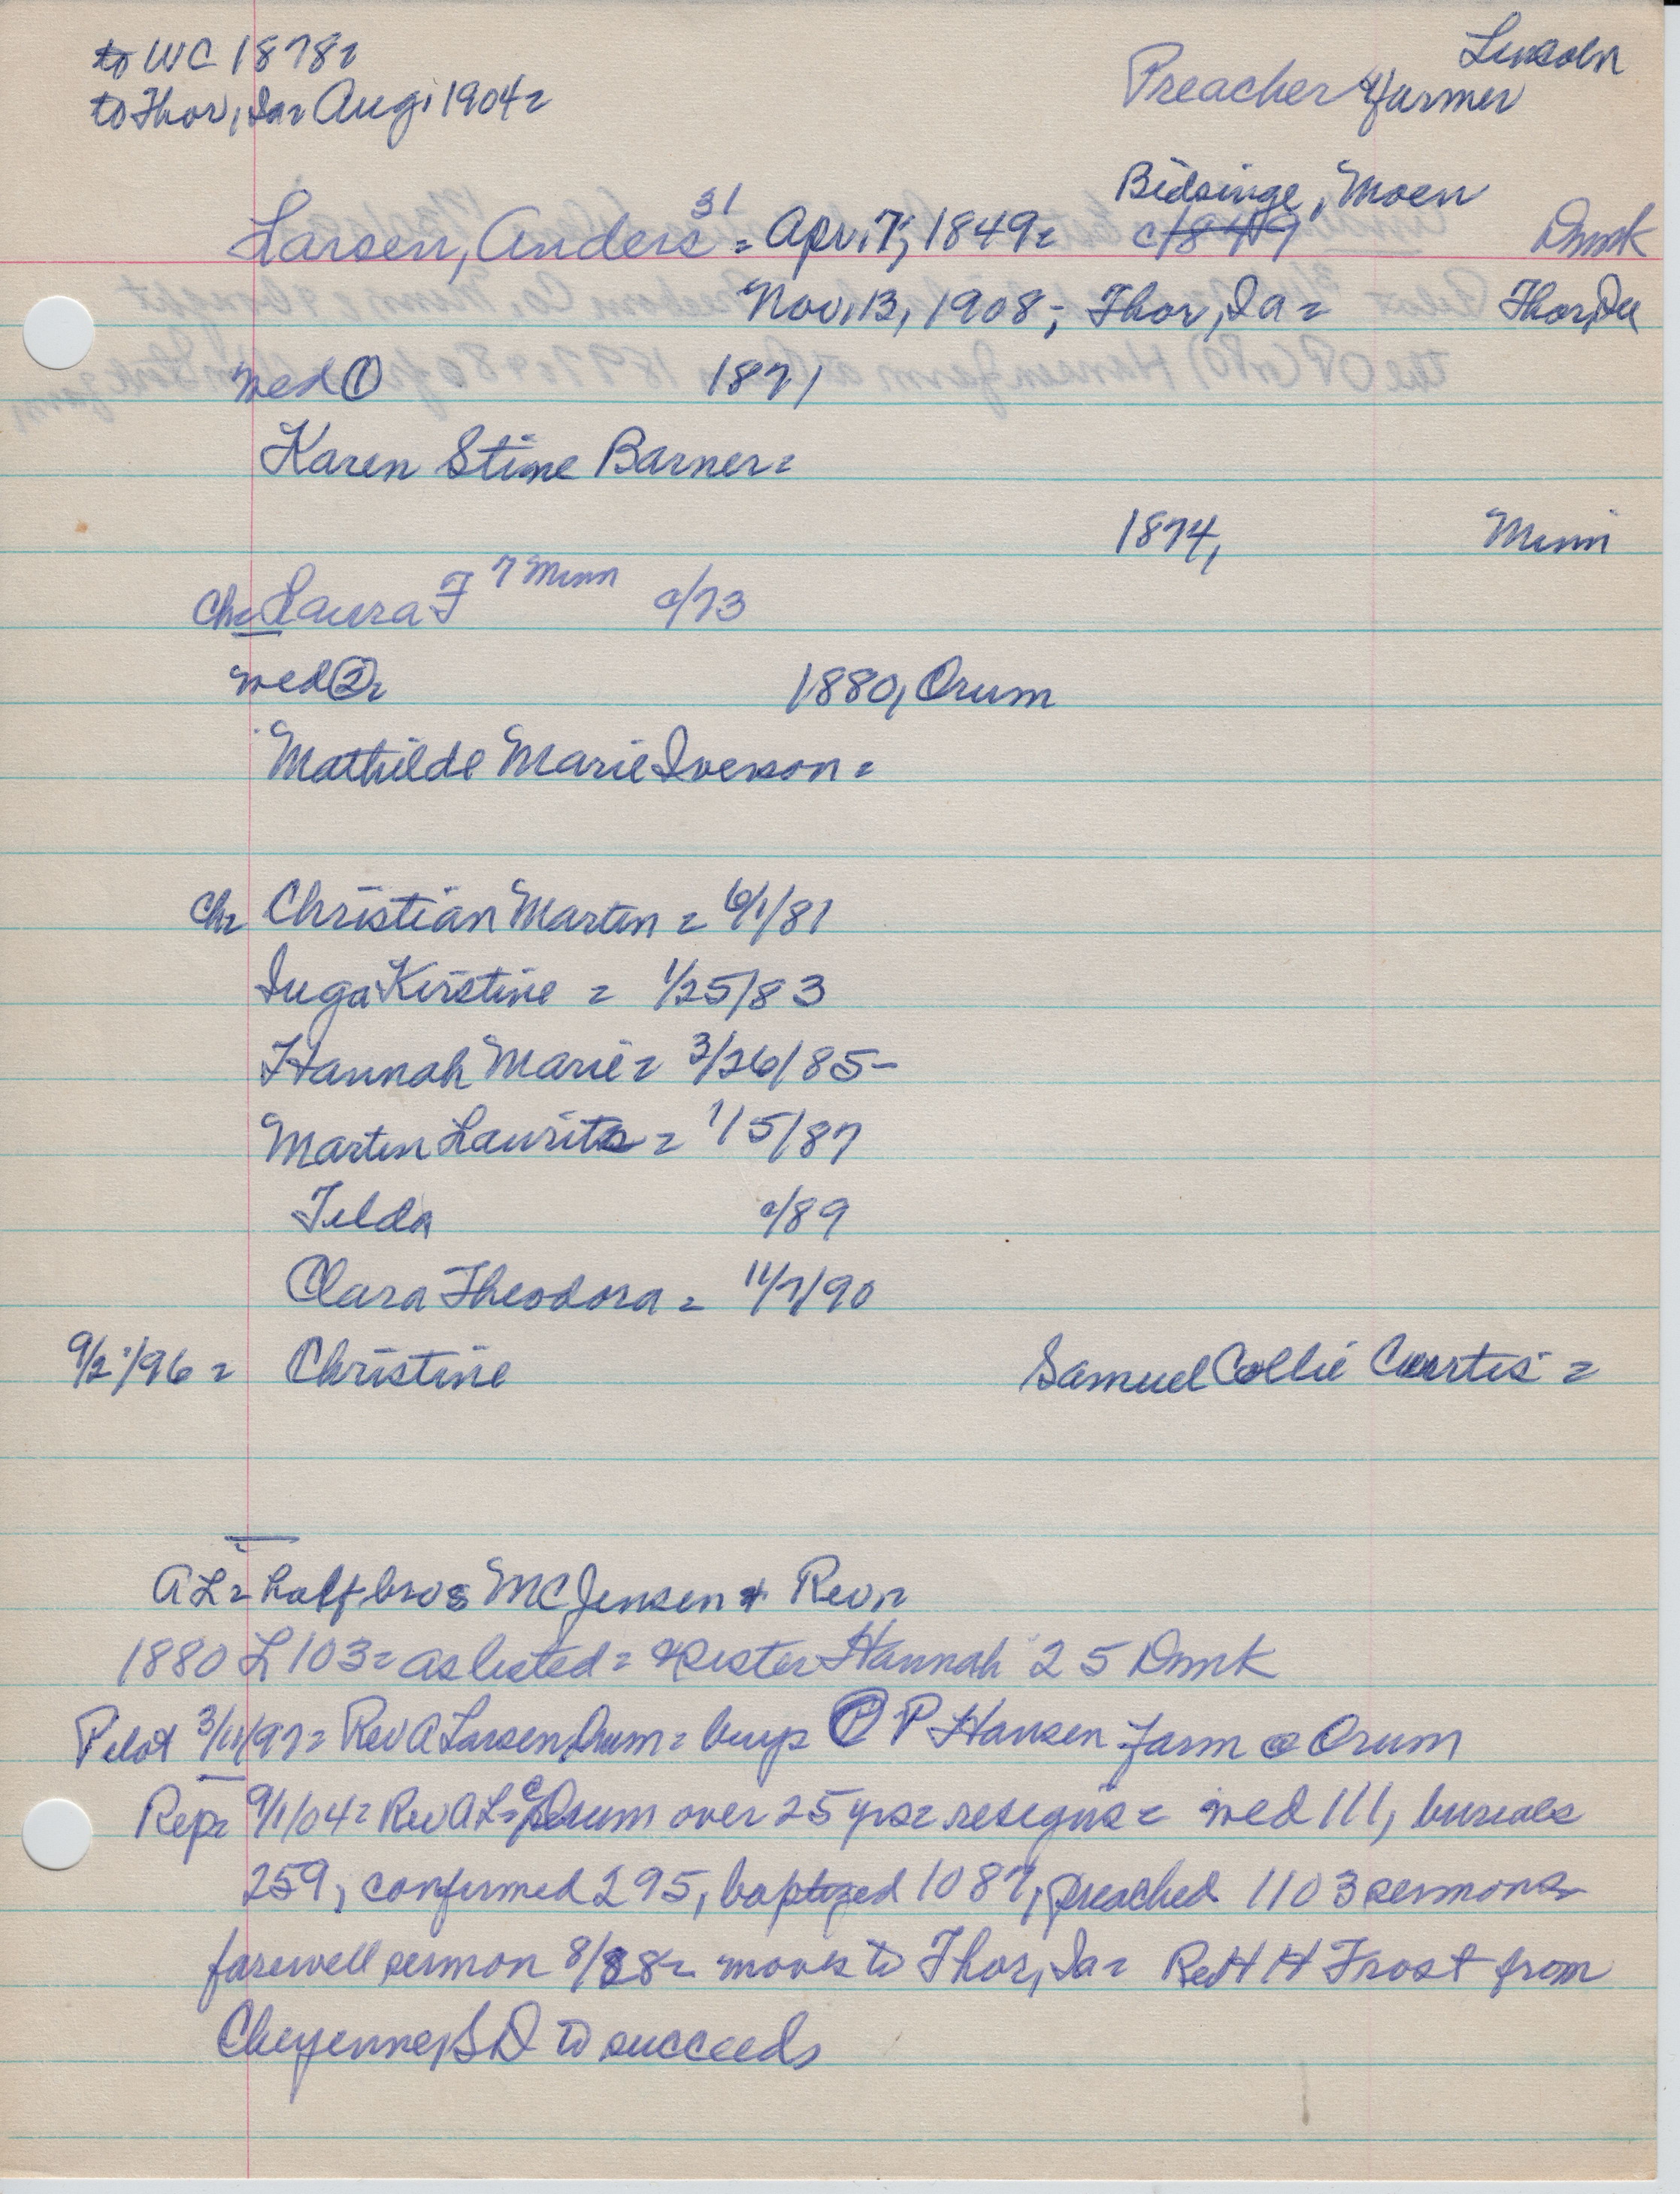 to WC 1878=
Lincoln
to Thor, Ia= Aug, 1904=
Preacher & farmer
Bidsinge, Moen
Larsen, Anders 31 = Apr, 7, 1849= c/1849 Dmk
Nov, 13, 1908; Thor, Ia = Thor, Ia
med ① 1871
Karen Stine Barner=
1874, Minn
Ch= Laura F 7 Minn c/73
med ②= 1880, Orum
Mathilde Marie Iverson=
Ch= Christian Marten = 6/1/81
Inga Kirstine = 1/25/83
Hannah Marie= 3/26/85-
Marten Laurits = 1/5/87
Tilda c/89
Clara Theodora = 11/7/90
9/2/96 = Christine Samuel Collie Curtis =
AL= half bros MC Jensen & Rev=
1880 L 103= as listed = & sister Hannah 25 Dmk
Pilot 3/11/97= Rev A Larsen, Orum= buys P P Hansen farm @ Orum
Rep= 9/1/04= Rev AL= @ Orum over 25 yrs= resigns= med 111, burials
259, confirmed 295, baptized 1087, preached 1103 sermons=
farewell sermon 8/28= moves to Thor, Ia= Rev H H Frost from
Cheyenne, S D to succeeds